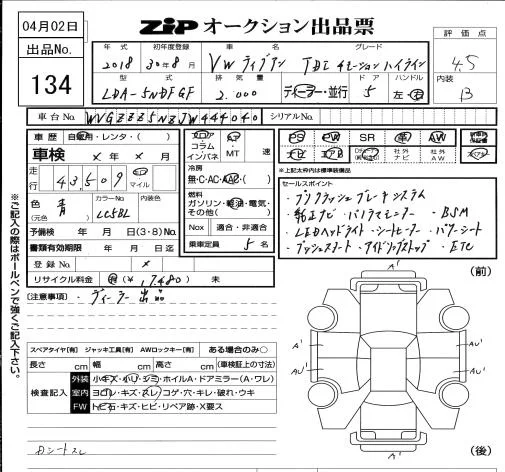 04月02日
ZiP オークション出品票
出品No.
134
評価点
4.5
内装
B
年式
初年度登録
車名
グレード
2018
30年8月
VW ティグアン
TDI 4モーション ハイライン
型式
排気量
ドア
ハンドル
LDA-5NDFGF
2.000
ディーラー・並行
5
左・右
車台No.
WVGZZZ5NZJW444040
シリアルNo.
車歴
自家用・レンタ・( )
車検
× 年 × 月 × 日
走行
43,509
マイル
色
青
(元色)
カラーNo
LC5BL
内装色
予備検 年 月 日(3・8)No.
書類有効期限 年 月 日迄
登録No.
×
リサイクル料金
(¥ 17,480 ) 未
フロア
コラム
インパネ
AT
・MT
速
冷房
無・C・AC・AAC・( )
燃料
ガソリン・軽油・電気・
その他( )
Nox
適合・非適合
乗車定員
5 名
PS
PW
SR
革
AW
ナビ
エアB
社外ナビ
社外AW
※上記太枠内は標準装備品
セールスポイント
・プリクラッシュブレーキシステム
・純正ナビ ・バックモニター ・BSM
・LEDヘッドライト ・シートヒーター ・パワーシート
・プッシュスタート ・アイドリングストップ ・ETC
(注意事項)
・ディーラー出品
※ご記入の際はボールペンで強くご記入下さい。
スペアタイヤ[有] ジャッキ工具[有] AWロックキー[有] ある場合のみ○
長さ cm 幅 cm 高さ cm (車検証上の寸法)
検査記入
外装
小キズ・小リ・シミ・ホイルA・ドアミラー(A・ワレ)
室内
ヨゴレ・キズ・スレ・コゲ・穴・キレ・破れ・ウキ
FW
トビ石・キズ・ヒビ・リペア跡・X要ス
Dシートスレ
(前)
A'
A'
A'
AU'
AU'
AU'
A'
(後)